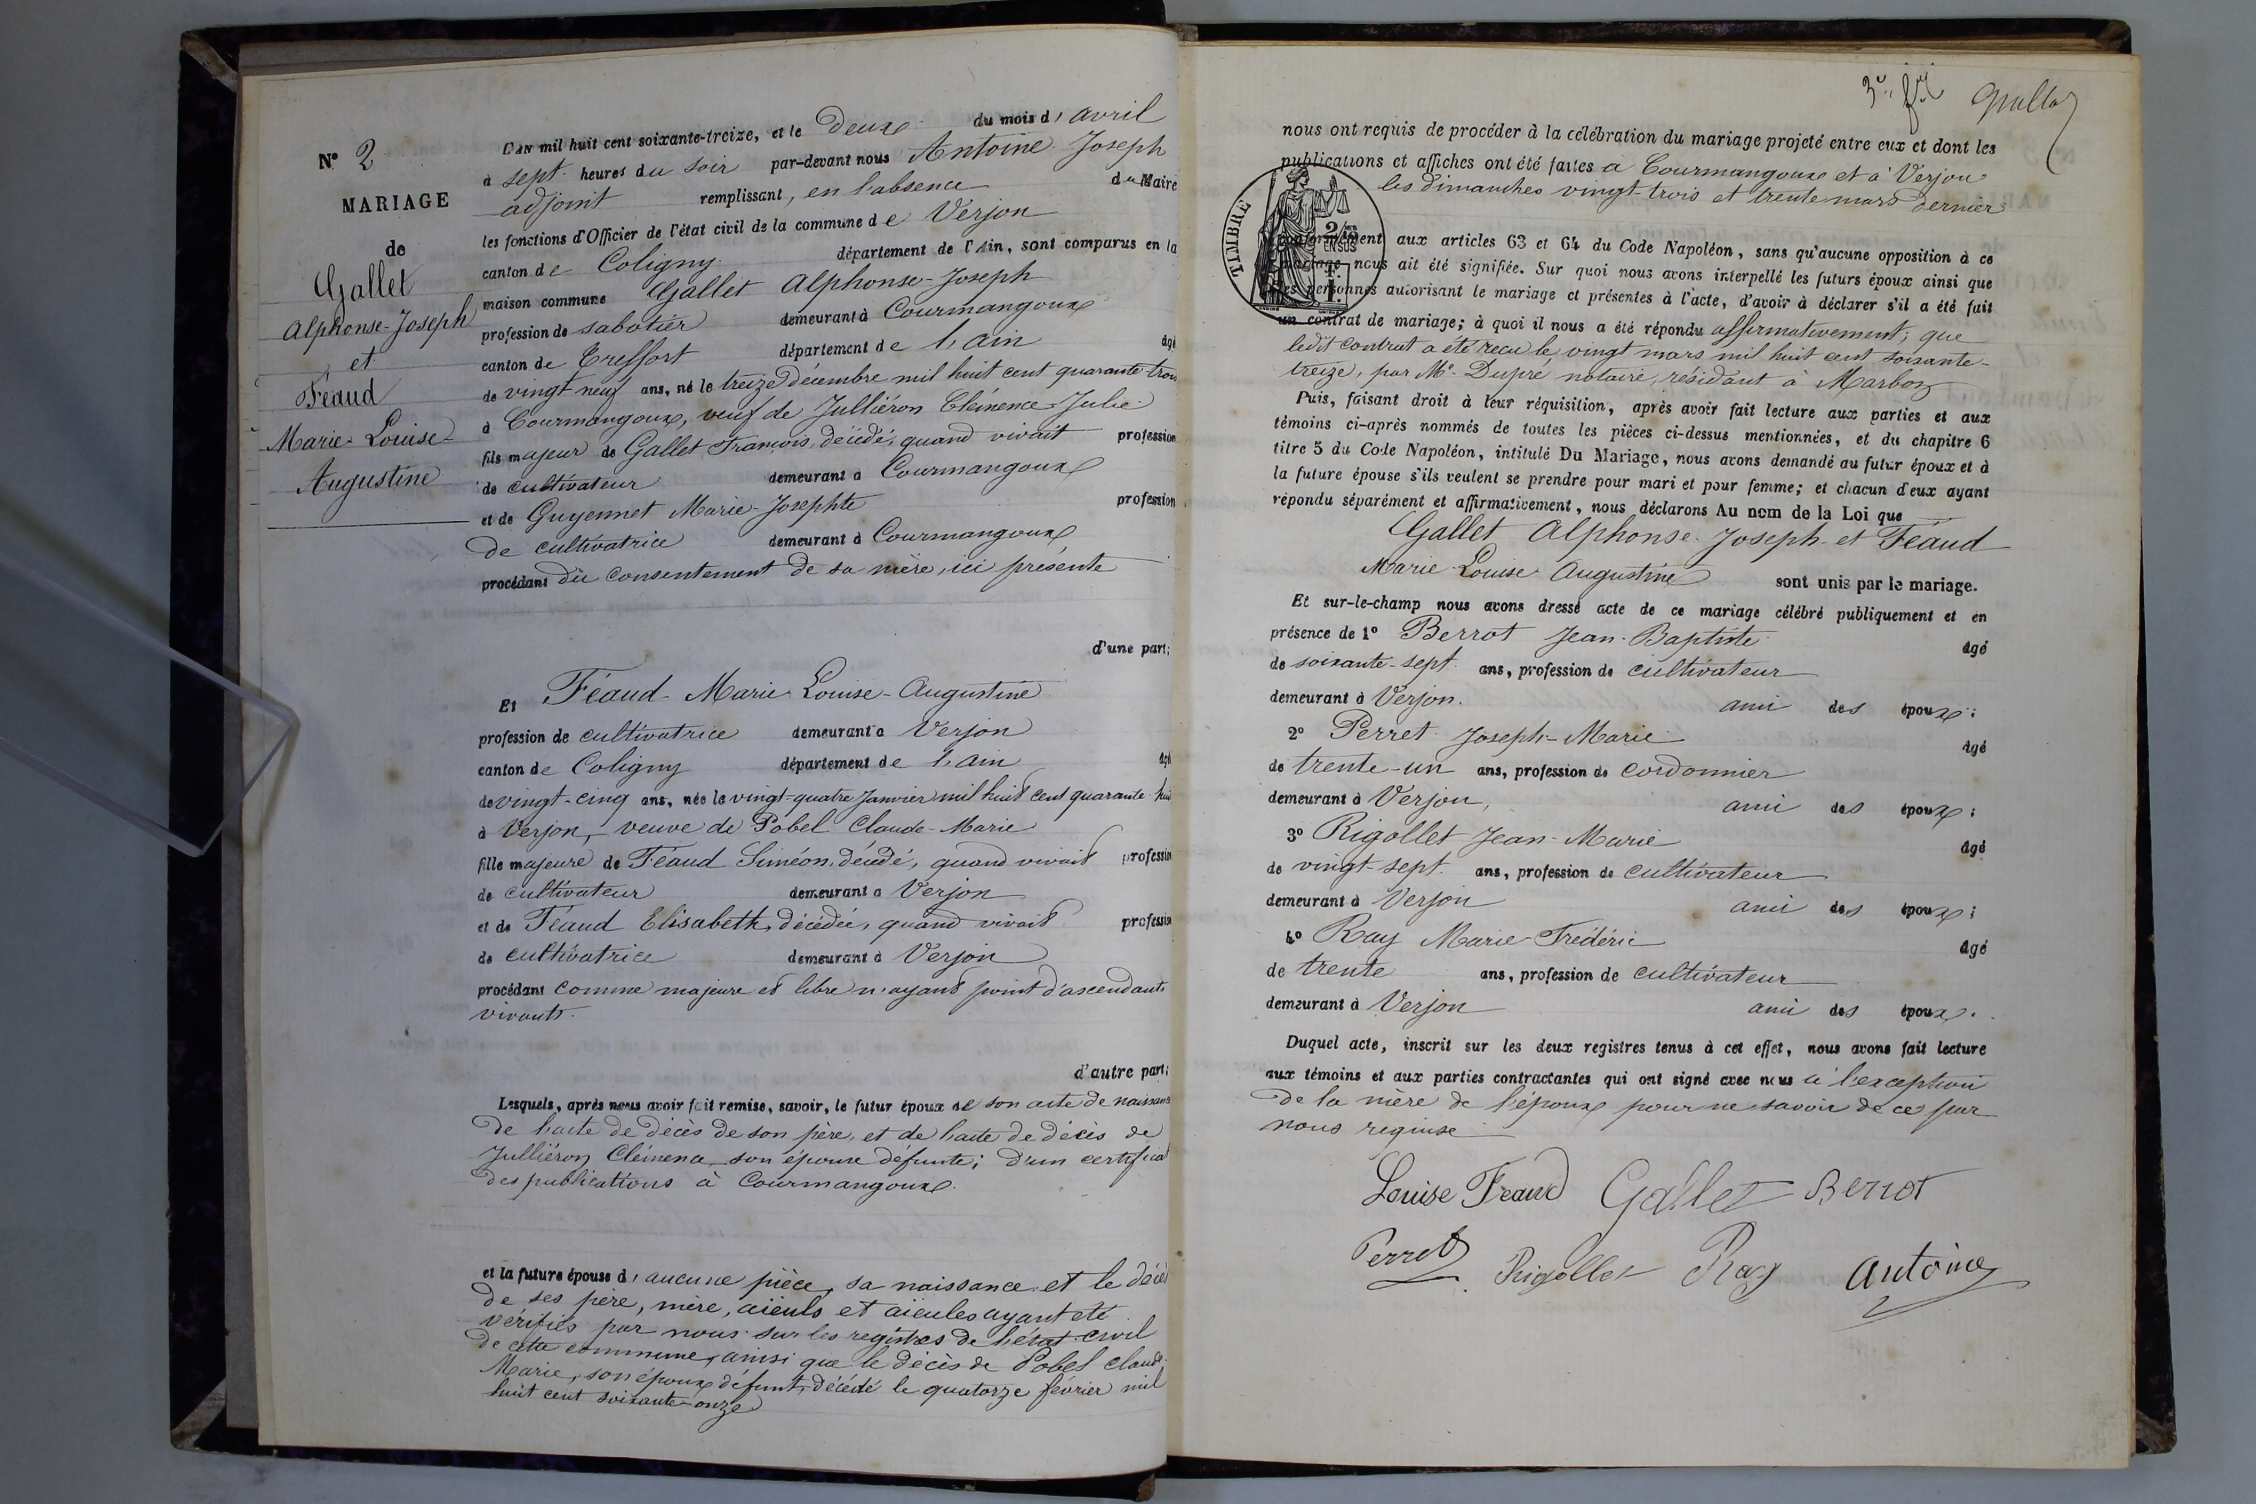 N° 2
MARIAGE
de
Gallet
Alphonse-Joseph
et
Féaud
Marie-Louise-
Augustine
L'AN mil huit cent soixante-treize, et le deux du mois d'avril
à sept heures du soir par-devant nous Antoine Joseph
adjoint remplissant, en l'absence du Maire
les fonctions d'Officier de l'état civil de la commune de Verjon
canton de Coligny département de l'Ain, sont comparus en la
maison commune Gallet Alphonse-Joseph
profession de sabotier demeurant à Courmangoux
canton de Treffort département de l'Ain âgé
de vingt-neuf ans, né le treize décembre mil huit cent quarante-trois
à Courmangoux, veuf de Julliéron Clémence-Julie
fils majeur de Gallet François, décédé, quand vivait profession
de cultivateur demeurant à Courmangoux
et de Guyennet Marie-Josephte profession
de cultivatrice demeurant à Courmangoux
procédant du consentement de sa mère, ici présente
d'une part;
Et Féaud-Marie-Louise-Augustine
profession de cultivatrice demeurant à Verjon
canton de Coligny département de l'Ain âgé
de vingt-cinq ans, née le vingt-quatre Janvier mil huit cent quarante-huit
à Verjon, veuve de Pobel Claude-Marie
fille majeure de Féaud Siméon, décédé, quand vivait profession
de cultivateur demeurant à Verjon
et de Féaud Elisabeth, décédée, quand vivait profession
de cultivatrice demeurant à Verjon
procédant comme majeure et libre n'ayant point d'ascendants
vivants.
d'autre part;
Lesquels, après nous avoir fait remise, savoir, le futur époux de son acte de naissance
de l'acte de décès de son père, et de l'acte de décès de
Julliéron Clémence son épouse défunte; d'un certificat
des publications à Courmangoux.
et la future épouse d'aucune pièce, sa naissance et le décès
de ses père, mère, aïeuls et aïeules ayant été
vérifiés par nous sur les registres de l'état civil
de cette commune, ainsi que le décès de Pobel Claude-
Marie, son époux défunt, décédé le quatorze février mil
huit cent soixante-onze
3e fet
nous ont requis de procéder à la célébration du mariage projeté entre eux et dont les
publications et affiches ont été faites à Courmangoux et à Verjon
les dimanches vingt-trois et trente mars dernier
TIMBRE
2/10 EN SUS
conformément aux articles 63 et 64 du Code Napoléon, sans qu'aucune opposition à ce
mariage nous ait été signifiée. Sur quoi nous avons interpellé les futurs époux ainsi que
les personnes autorisant le mariage et présentes à l'acte, d'avoir à déclarer s'il a été fait
un contrat de mariage; à quoi il nous a été répondu affirmativement; que
ledit contrat a été reçu le vingt mars mil huit cent soixante-
treize, par Me Dupré notaire, résidant à Marboz
Puis, faisant droit à leur réquisition, après avoir fait lecture aux parties et aux
témoins ci-après nommés de toutes les pièces ci-dessus mentionnées, et du chapitre 6
titre 5 du Code Napoléon, intitulé Du Mariage, nous avons demandé au futur époux et à
la future épouse s'ils veulent se prendre pour mari et pour femme; et chacun d'eux ayant
répondu séparément et affirmativement, nous déclarons Au nom de la Loi que
Gallet Alphonse-Joseph et Féaud
Marie-Louise-Augustine sont unis par le mariage.
Et sur-le-champ nous avons dressé acte de ce mariage célébré publiquement et en
présence de 1° Berrot Jean-Baptiste âgé
de soixante-sept ans, profession de cultivateur
demeurant à Verjon. ami des époux;
2° Perret Joseph-Marie âgé
de trente-un ans, profession de cordonnier
demeurant à Verjon, ami des époux;
3° Rigollet Jean-Marie âgé
de vingt-sept ans, profession de cultivateur
demeurant à Verjon ami des époux;
4° Ray Marie-Frédéric âgé
de trente ans, profession de cultivateur
demeurant à Verjon ami des époux.
Duquel acte, inscrit sur les deux registres tenus à cet effet, nous avons fait lecture
aux témoins et aux parties contractantes qui ont signé avec nous à l'exception
de la mère de l'époux pour ne savoir de ce par
nous requise
Louise Feaud Gallet Berrot
Perret Rigollet Ray Antoine